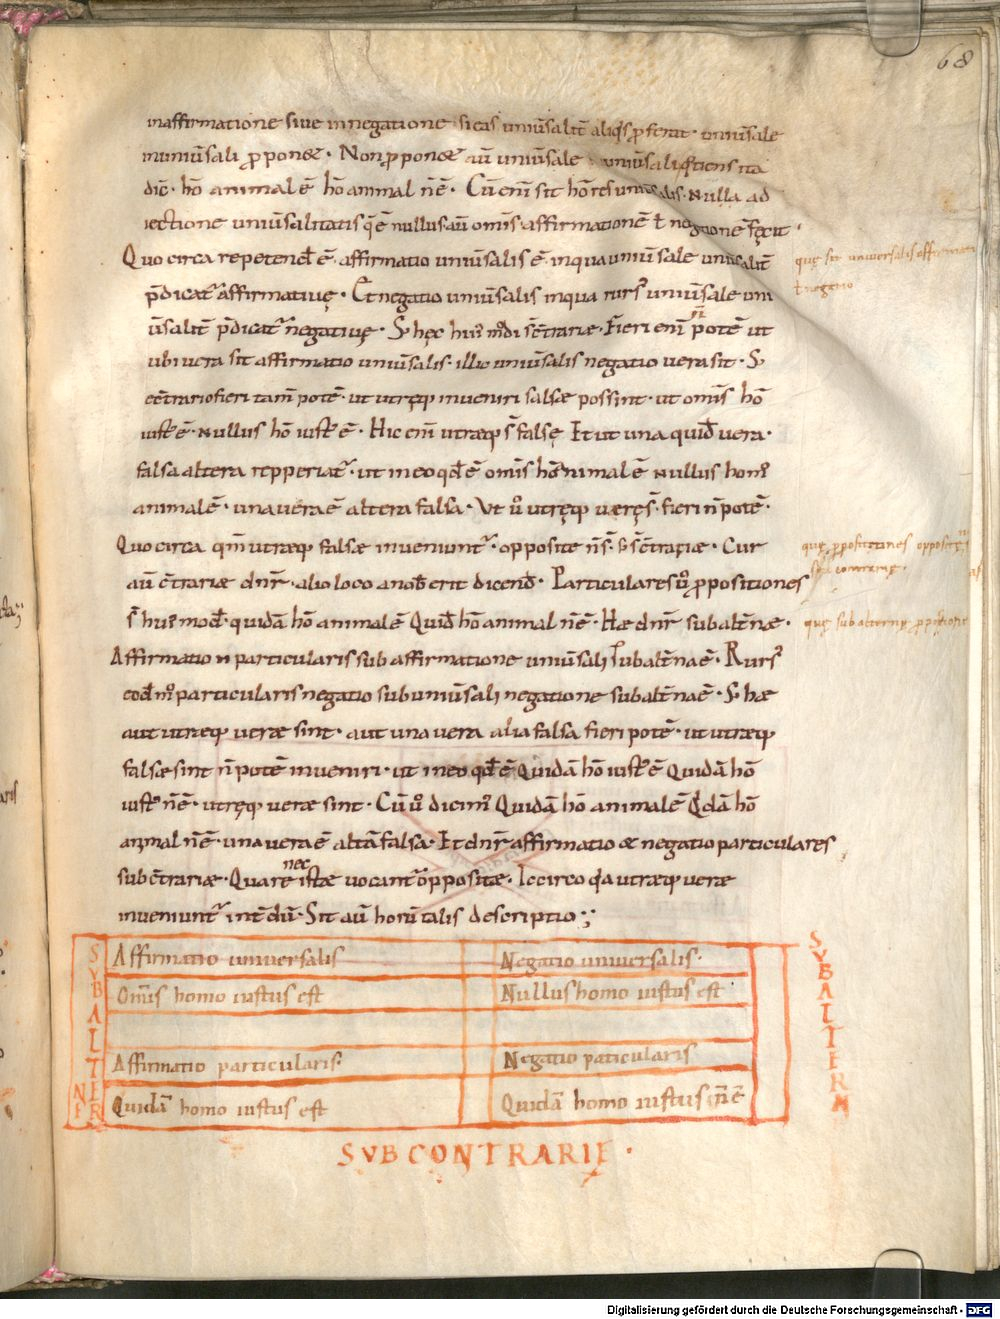 68
inaffirmatione sive innegatione · si eas univ̄salit̄ aliq̇s p̱ferat · univ̄sale
inuniv̄sali p̱ponet · Non p̱ponet aū univ̄sale
dic̄ · hō animal ē hō animal n̄ ē · Cū eni sit hō res univ̄salis · Nulla ad
iectione univ̄salitatis q̄ ē nullus · aū omīs · affirmationē ł negationē fecit ·
Quo circa repetend̄ ē · affirmatio univ̄salis ē · inqua univ̄sale univ̄salit̄
p̄dicat᷑ affirmativę · Et negatio univ̄salis inqua rurs᷒ univ̄sale uni
v̄salit̄ p̄dicat᷑ negativę · S; hęc hui᷒ modi s̄ c̄trariæ · Fieri enī n̄ potē ut
ubi vera sit affirmatio univ̄salis · illic univ̄salis negatio vera sit · S;
ec̄trario fieri tam̄ potē · ut utręq; inveniri falsæ possint · ut omīs hō
iust᷒ ē · Nullus hō iust᷒ ē · Hic enī utræq; s̄ falsę Et ut una quid̄ vera ·
falsa altera repperiat᷑ · ut in eo qd̄ ē omīs hō animal ē Nullus homo
animal ē · una vera ē altera falsa · Ut v̊ utręq; veręs̄ · fieri n̄ potē ·
Quo circa qm̄ utræq; falsæ inveniunt᷑ · opposite n̄ s̄ · S; c̄trariæ · Cur
aū c̄trariæ dn̄r · alio loco anob̄ erit dicend̄ · Particulares v̊ p̱positiones
s̄ hui᷒ mod̄ · quidā hō animal ē Quid̄ hō animal n̄ ē · Hæ dn̄r subalt̄næ ·
Affirmatio n̄ particularis sub affirmatione univ̄sali subalt̄na ē · Rurs᷒
eod̄ m̊ particularis negatio sub univ̄sali negatione subalt̄na ē · S; hæ
aut utræq; veræ sint · aut una vera alia falsa fieri potē · ut utræq;
falsæ sint n̄ potē inveniri · ut in eo qd̄ ē Quidā hō iust᷒ ē Quidā hō
iust᷒ n̄ ē · utręq; veræ sint · Cū v̊ dicim᷒ Quidā hō animal ē Qdā hō
animal n̄ ē · una vera ē altā falsa · Et dn̄r affirmatio & negatio particulares
subc̄trariæ · Quare nec istæ vocant᷑ oppositæ · Iccirco qa utræq; veræ
inveniunt᷑ int̄dū · Sit aū horū talis descriptio :;
quę sit universalis affirmati
ł negatio
quę p̱positiones opposite n̄
s; contrarię ·
quę subalternę p̱positione
SUBALTERNE
Affirmatio universalis
Negatio universalis ·
Om̄is homo iustus est
Nullus homo iustus est
Affirmatio particularis ·
Negatio paticularis
Quidā homo iustus est
Quidā homo iustus n̄ ē
SUBALTERN
SVBCONTRARIE ·
Digitalisierung gefördert durch die Deutsche Forschungsgemeinschaft · DFG